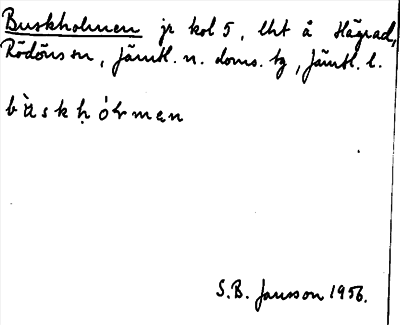 Buskholmen jr kol 5, lht å Hägrad,
Rödöns sn, Jämtl. n. doms. tg, Jämtl. l.
bùskḥólmen
S.B. Jansson 1956.